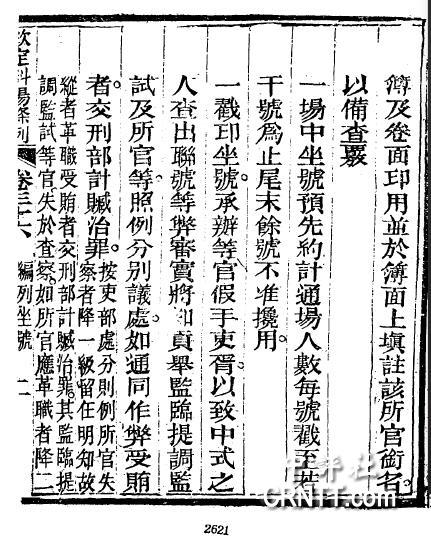 簿及卷面印用並於簿面上填註該所官銜名
以備查覈
一場中坐號預先約計通場人數每號戳至若
干號爲止尾末餘號不准攙用
一戳印坐號承辦等官假手吏胥以致中式之
人查出聯號等弊審實將知貢舉監臨提調監
試及所官等照例分别議處如通同作弊受賄
者交刑部計贓治罪
按吏部處分則例所官失
察者降一級留任明知故
縱者革職受賄者交刑部計贓治罪其監臨提
調監試等官失於查察如所官應革職者降二
欽定科場條例 卷三十六 編列坐號 二
中評社
CRNTT.com
2621